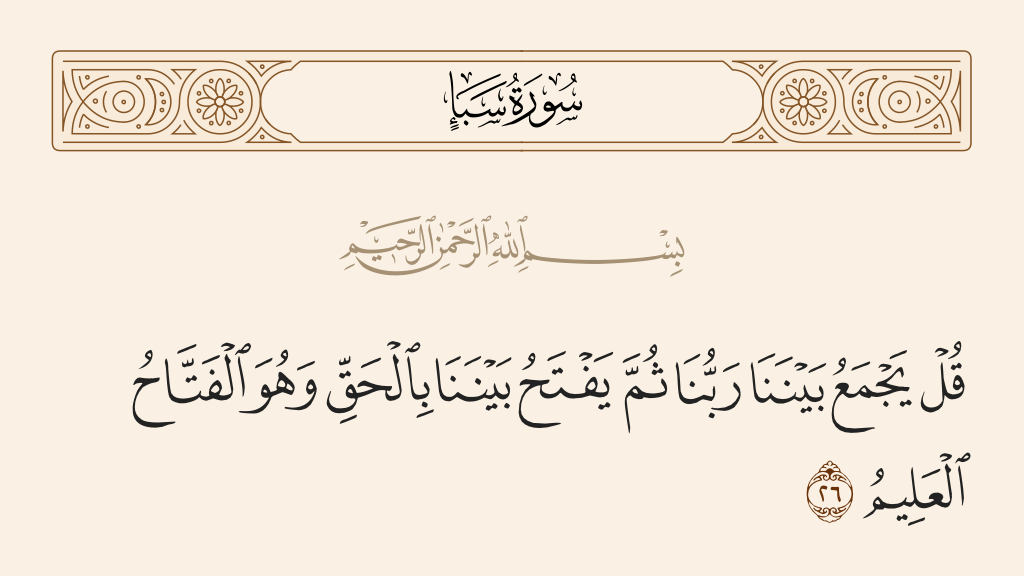 سُورَةُ سَبَإٍ
بِسْمِ ٱللَّهِ ٱلرَّحْمَٰنِ ٱلرَّحِيمِ
قُلْ يَجْمَعُ بَيْنَنَا رَبُّنَا ثُمَّ يَفْتَحُ بَيْنَنَا بِٱلْحَقِّ وَهُوَ ٱلْفَتَّاحُ
ٱلْعَلِيمُ ٢٦